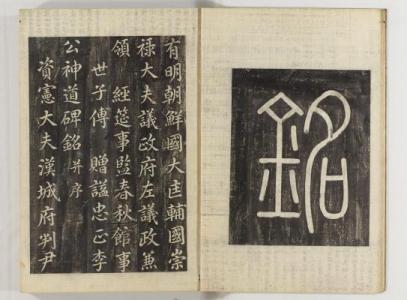 銘
有明朝鮮國大匡輔國崇
禄大夫議政府左議政兼
領 經筵事監春秋館事
世子傅 贈謚忠正李
公神道碑銘 并序
資憲大夫漢城府判尹